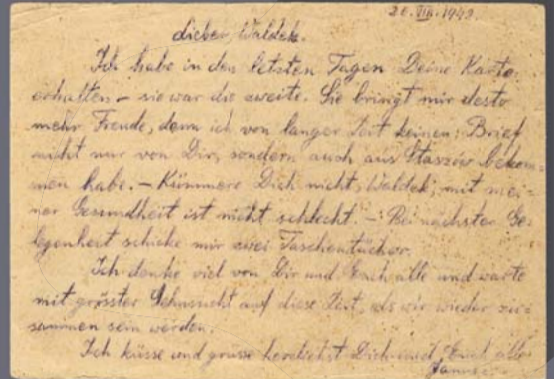 20.VIII.1942.
Lieber Waldek.
Ich habe in den letzten Tagen Deine Karte
erhalten – sie war die zweite. Sie bringt mir desto
mehr Freude, denn ich von langer Zeit keinen Brief
nicht nur von Dir, sondern auch aus Staszów bekom-
men habe. – Kümmere Dich nicht, Waldek, mit mei-
ner Gesundheit ist nicht schlecht. – Bei nächster Ge-
legenheit schicke mir zwei Taschentücher.
Ich denke viel von Dir und Euch alle und warte
mit grösster Sehnsucht auf diese Zeit, als wir wieder zu-
sammen sein werden.
Ich küsse und grüsse herzlichst Dich und Euch alle